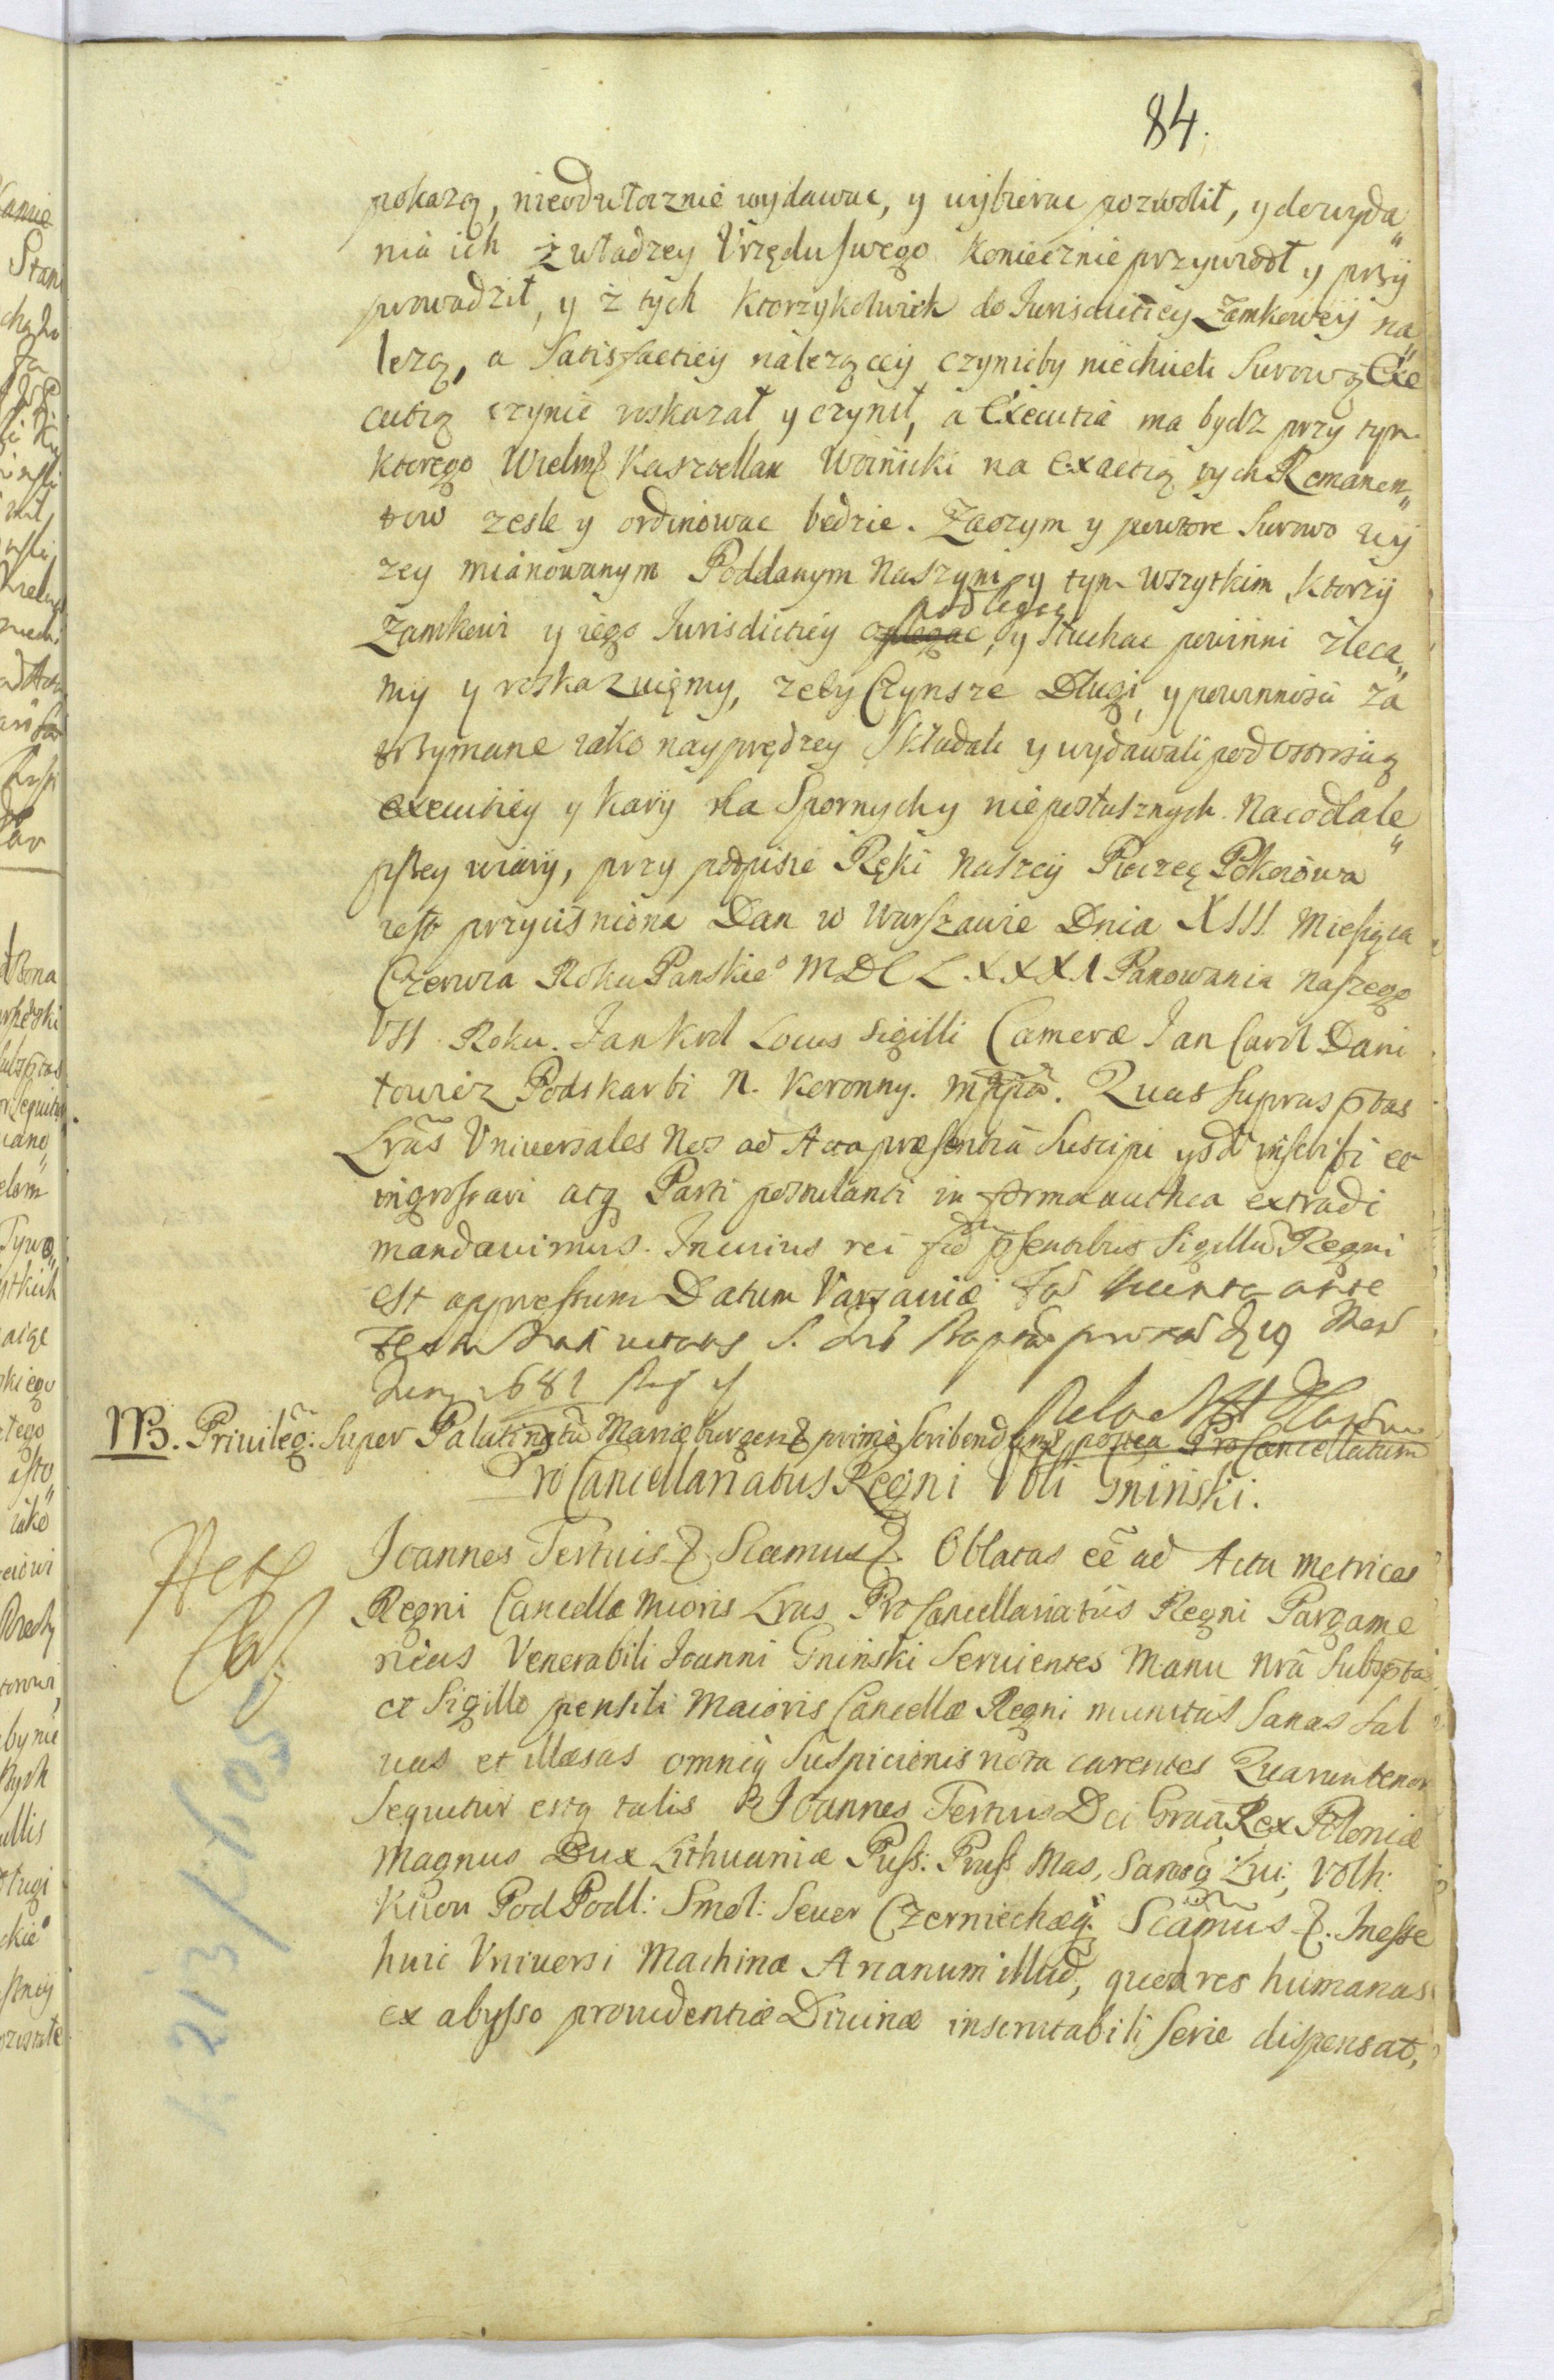 84.
pokazą, nieodwłocznie wydawac, y wybierac pozwolił, y do wyda„
nia ich z władzey Vrzędu swego koniecznie przywiodł y przy
prowadził, y z tych ktorzykolwiek do Iurisdictiey Zamkowey na„
lezą, a Satisfactiey nalezącey czynicby niechcieli Surową Exe
cutią czynic roskazał y czynił, a Executia ma bydz przy tym
ktorego Wielmż Kasztellan Woinicki na Exactią tych Remanen„
tow zesle y ordinowac będzie. Zaczym y powtore Surowo wy
zey mianowanym Poddanym Naszym y tym wszytkim, ktorzy
podlegac
Zamkowi y iego Iurisdictiey, y słuchac powinni zleca„
my y roskazuięmy, zeby Czynsze Długi, y powinnosci za
trzymane iako nayprędzey Składali y wydawali pod
executiey y kary na Spornych y nieposłusznych. Na co dla le„
pszey wiary, przy podpisie Ręki Naszey Pieczęc Pokoiowa
iest przycisniona Dan w Warszawie Dnia XIII Miesiąca
Czerwca Roku Panskie° MDCLXXXI Panowania Naszego
VII Roku. Jan Krol Locus Sigilli Cameræ Jan Carol Dani
łowicz Podskarbi N. Koronny. mppa. Quas suprasptas
Lras Vniuersales Nos ad Acta præsentia Suscipi ysd inscribi et
ingrossari atq Parti postulanti in forma authca extradi
mandauimus. In cuius rei fid pſentibus Sigillu Regni
est appressum Datum Varsauiæ
1681
NB. Priuileg: Super Palatinatu Mariæburgens primo scribend postea ProCancellatum
ProCancellariatus Regni Vbli Gninski.
Joannes Tertius Scamus. Oblatas eē ad Acta Metrices
Regni Cancellæ Mioris Lras ProCancellariatus Regni Pargame
neas Venerabili Joanni Gninski Seruientes Manu nrā Subsptas
et Sigillo pensili Maioris Cancellæ Regni munitas Sanas Sal
uas et illæsas omniq Suspicionis nota carentes Quarum tenor
Sequitur estq talis Joannes Tertius Dei Graā Rex Poloniæ
Magnus Dux Lithuaniæ Russ: Pruss Mas, Samog Liu, Volh:
Kiiou Pod Podl: Smol: Seuer Czerniechœq. Scāmus. Inesse
huic Vniuersi Machinæ Arcanum illud, quod res humanas
ex abysso prouidentiæ Diuinæ inscrutabili Serie dispensat,